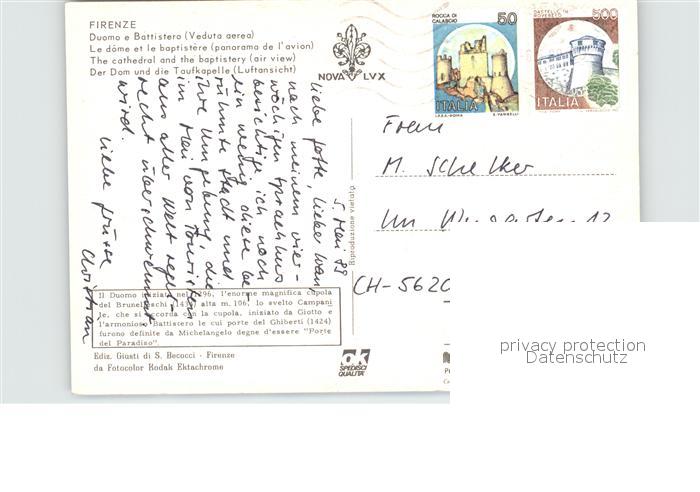 FIRENZE
Duomo e Battistero (Veduta aerea)
Le dôme et le baptistère (panorama de l'avion)
The cathedral and the baptistery (air view)
Der Dom und die Taufkapelle (Luftansicht)
NOVA LVX
ROCCA DI CALASCIO
50
ITALIA
I.P.Z.S.-ROMA E. VANGELLI
CASTELLO DI ROVERETO
500
ITALIA
5. Mai 89
Liebe Gotte, lieber Hans,
nach meinem vier-
wöchigen Sprachkurs
besichtige ich noch
ein wenig diese be-
rühmte Stadt und
ihre Umgebung, die
im Mai von Touristen
aus aller Welt regel-
recht überschwemmt
wird.
Liebe Grüsse
Christian
Riproduzione vietata
Frau
M. Schelker
Im 12
CH-5620
Il Duomo iniziato nel 1296, l'enorme magnifica cupola
del Brunelleschi (1434) alta m. 106, lo svelto Campani
le, che si accorda con la cupola, iniziato da Giotto e
l'armonioso Battistero le cui porte del Ghiberti (1424)
furono definite da Michelangelo degne d'essere "Porte
del Paradiso".
Ediz. Giusti di S. Becocci - Firenze
da Fotocolor Kodak Ektachrome
ok
SPEDISCI
QUALITA'
privacy protection
Datenschutz